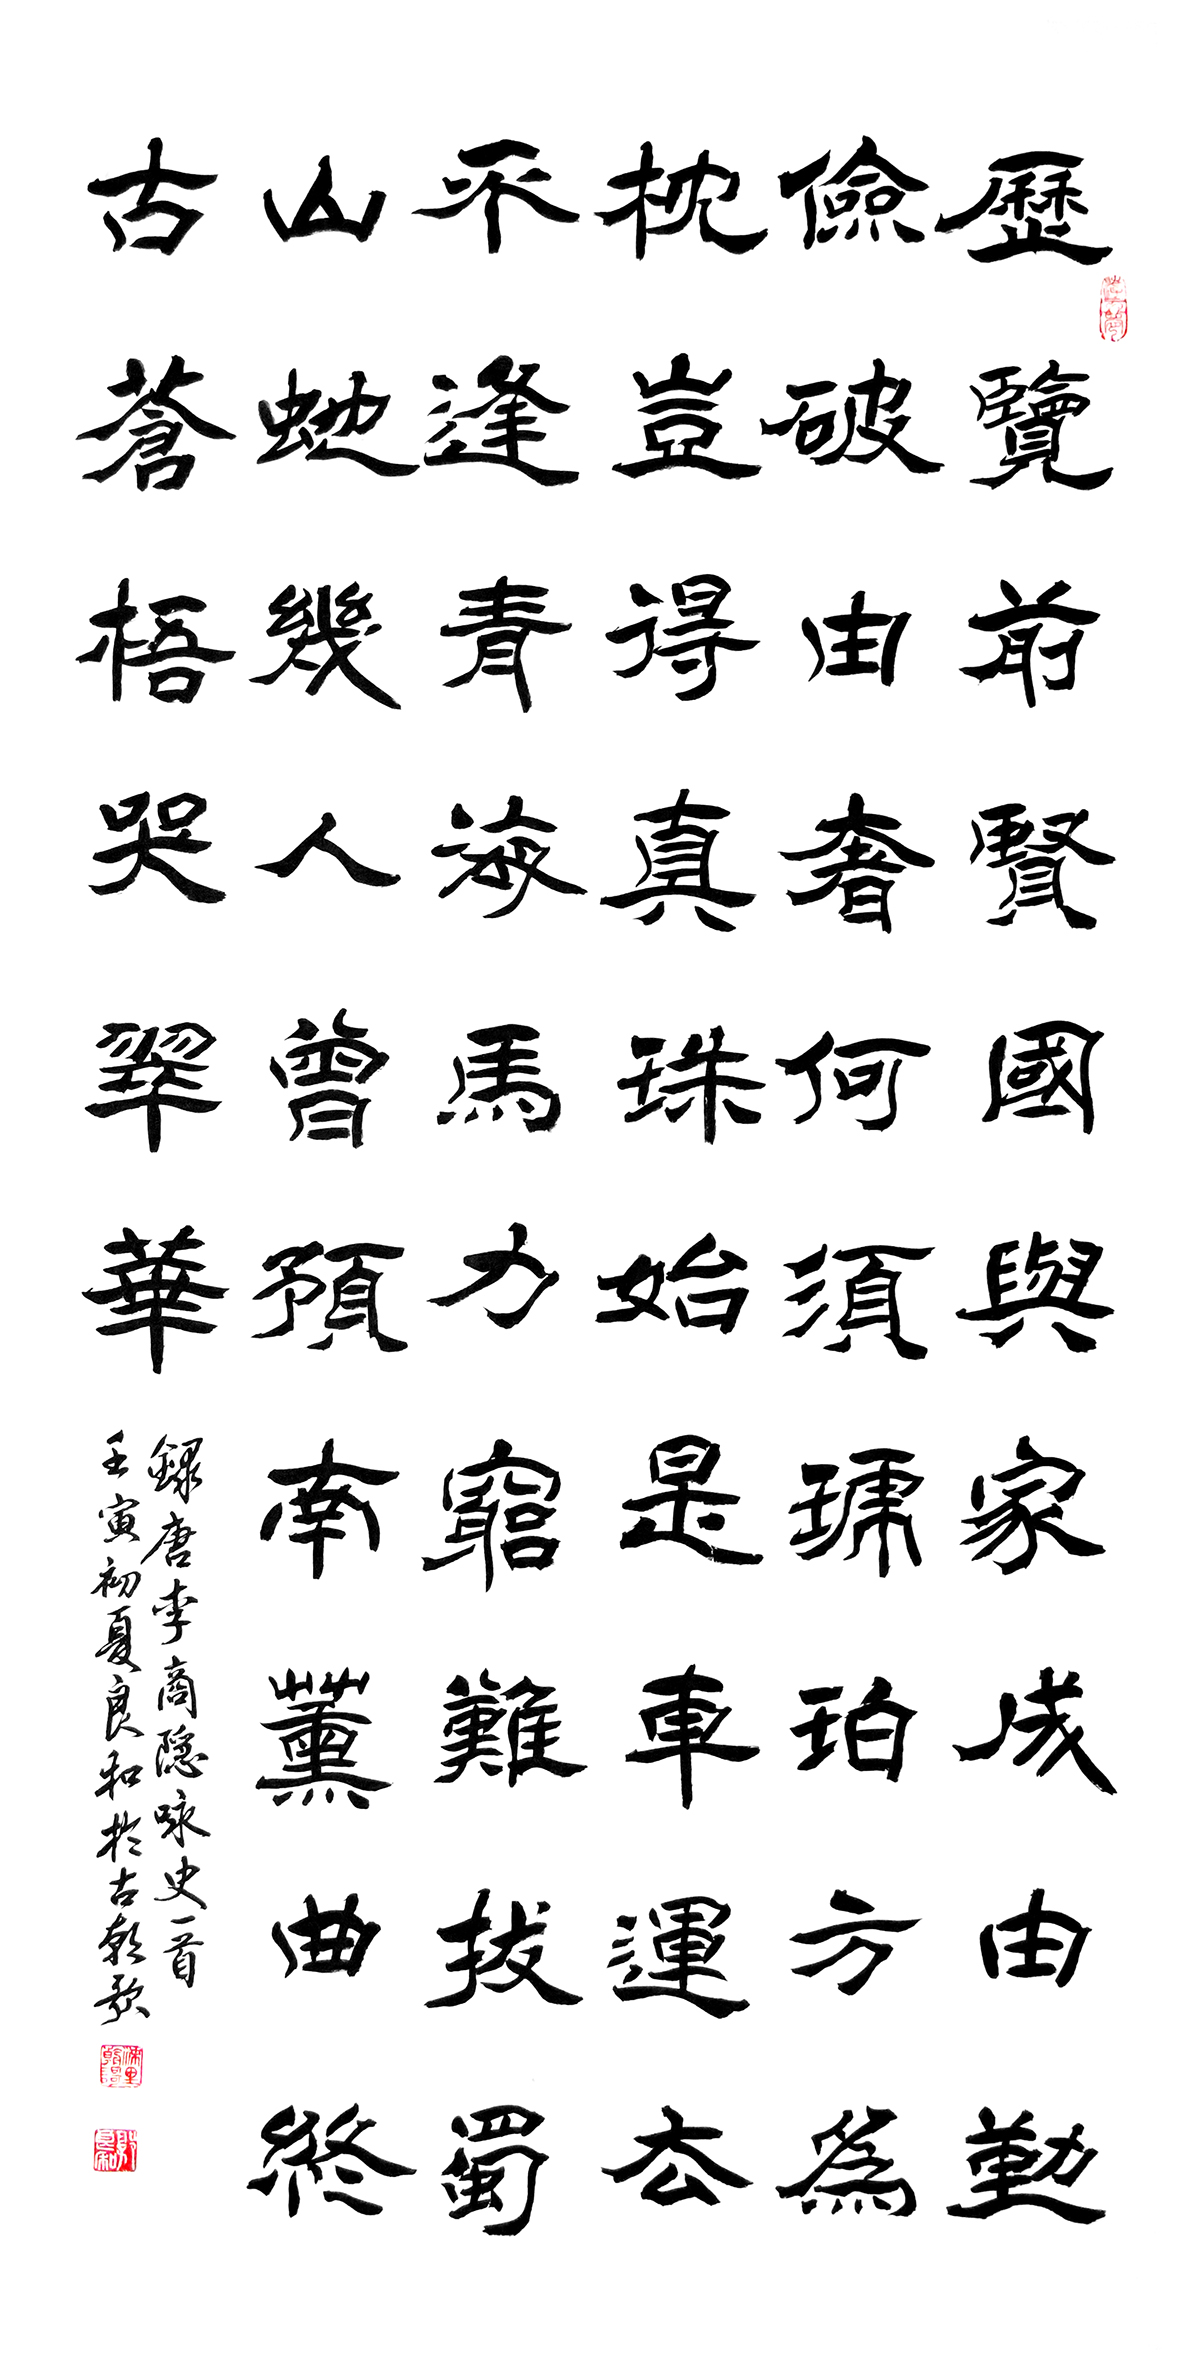 歷覽前賢國與家成由勤
儉破由奢何須琥珀方為
枕豈得真珠始是車運去
不逢青海馬力窮難拔蜀
山蛇幾人曾預南薰曲終
古蒼梧哭翠華
錄唐李商隱咏史一首
壬寅初夏良和於古朝歌